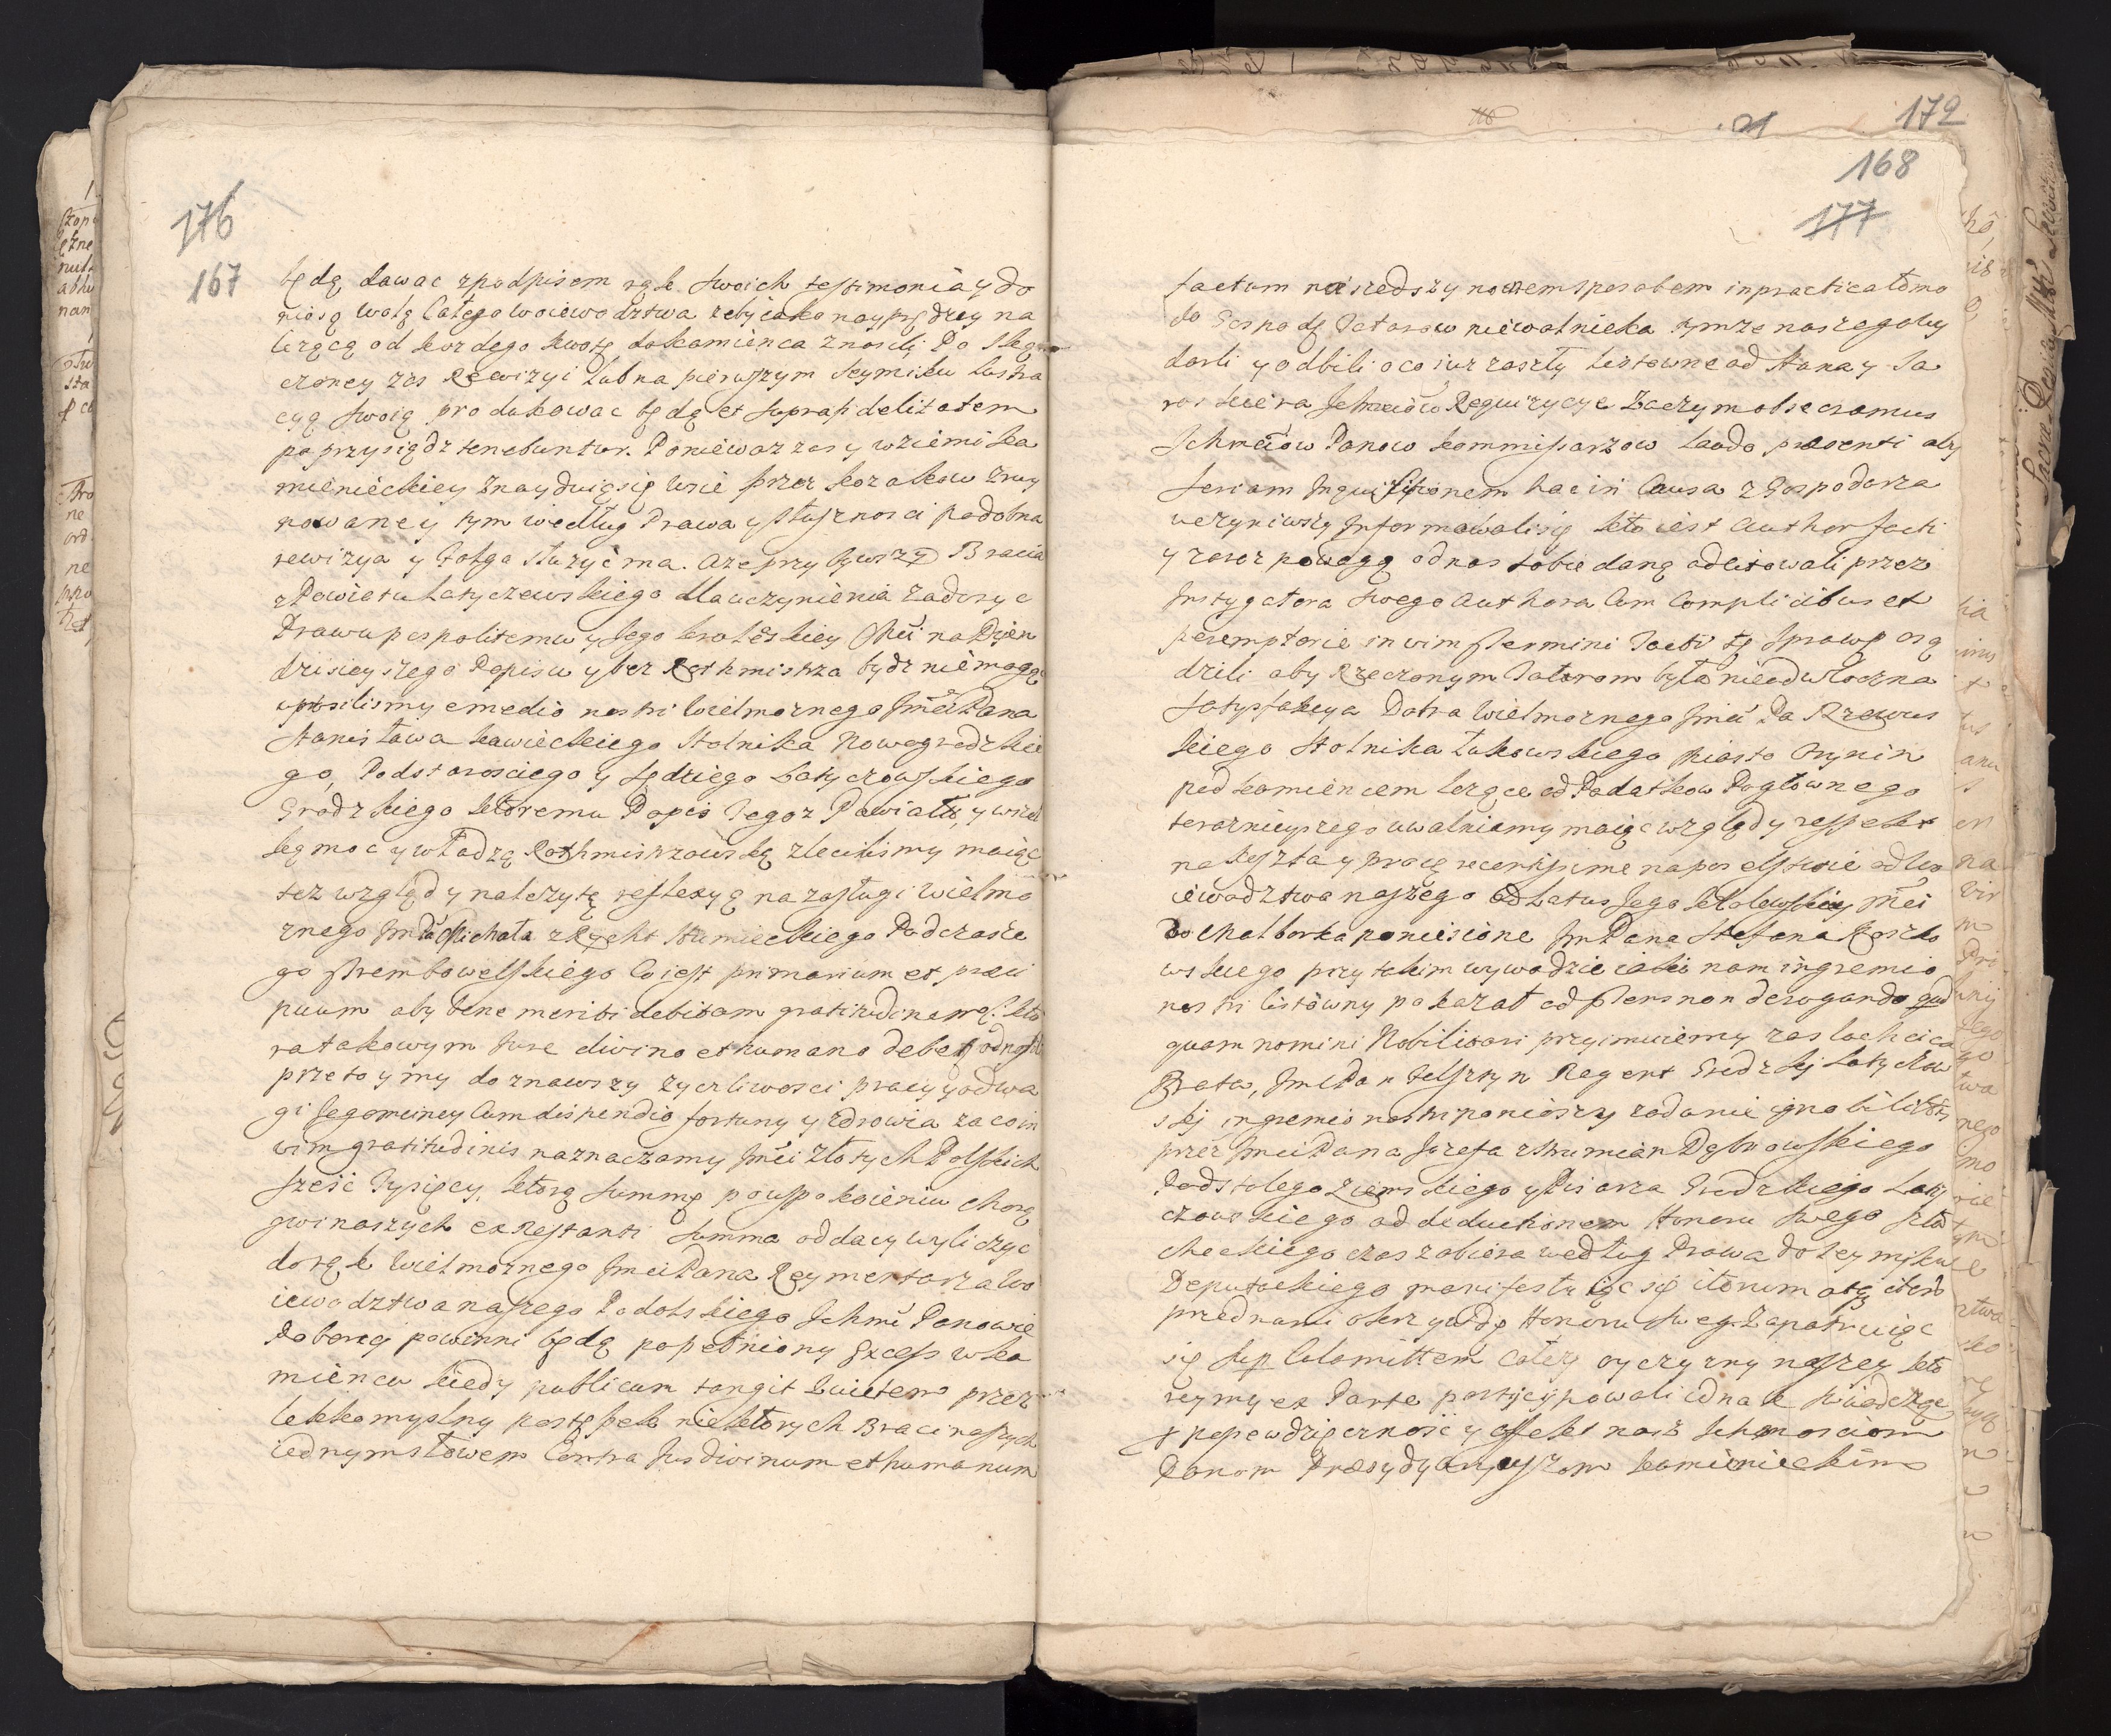 176
167
będą dawac zpodpisem rąk swoich testimonia y do
niosą wolą Całego woiewodztwa zeby iako nayprędzey na
lezącą od kozdego kwotę do Kamienca znosili Po Skąn
czoney zas Rewizyi lub na pierwszym Seymiku lustra
cyą swoią produkowac będą et supra fidelitatem
poprzysiądz tenebuntur. Poniewaz zas y wziemi ka
mienieckiey znayduią się wsie przez kozakow zruy
nowane y tym według Prawa y słusznosci podobna
rewizya y folga słuzyć ma. Aze przy bywszy Bracia
z Powiatu Latyczewskiego dla uczynienia zadosyc
Prawu pospolitemu y Jego krolêskiey Mći na Dzien
dzisieyszego Popisu y bez Rothmistrza bydz niemogą
uprosilismy e medio nostri Wielmoznego Jmći Pana
Stanisława kawieckiego Stolnika Nowogrodzkie
go, Podstarosciego y Sędziego Latyczowskiego
Grodzkiego ktoremu Popis Tegoz Powiatu, y wszel
ką moc y władzą Rothmistrzowską zlecilismy maiąc
tez wzgląd y nalezytą reflexyą na zasługi Wielmo
znego Jm Pa Michała z Rycht Humieckiego Podczasze
go Trembowelskiego Co iest primarium et præci
puum aby bene meriti debitam gratitudinem
ratakowym Jure divino et humano debet odnosili
przeto y my doznawszy zyczliwosci pracy y odwa
gi Jegomciney Cum dispendio fortuny y zdrowia za co in
vim gratitudinis naznaczamy Jmći złotych Polskich
sześć Tysięcy, ktorą summę po uspokoieniu Chorą
gwi naszych ex Restanti Summa oddacy wyliczyc
do rąk Wielmoznego Jmći Pana Reymentarza Wo
iewodztwa naszego Podolskiego Ichmć Panowie
Poborcy powinni będą popełniony Excess w ka
miencu kiedy publicum tangit Quietem przez
lekkomyslny postępek niektorych Braci naszych
iednym słowem Contra Jus divinum et humanum
172
21
168
177
factum naiszedszy nocnem sposobem in practicatomo
do Gospody Tatarow niewolnieka tymze naszego wy
darli y odbili o co iuz zaszły listowne od Hana y Sa
raskiera Ichmciow Requizycye Zaczym obsecramus
Ichmciow Panow kommissarzow Laudo præsenti aby
seriam Inquisitionem hac in Causa z Gospodarza
uczyniwszy Informowali się kto iest Author facti
y zaraz powagą od nas sobie daną adcitowali przez
Instygatora swego Authora Cum Complicibus et
peremptorie in vim Termini Tacti tę sprawę osą
dzili aby Rzeczonym Tatarom była nieodwłoczna
satysfakcya Dobra Wielmoznego Jmći Pa Rzewus
kiego Stolnika Łukowskiego Miasto Orynin
pod kamiencem lezące od Podatkow Pogłownego
teraznieyszego uwalniamy maiąc wzgląd y respekt
na koszta y pracę recentissime na poselstwie od Wo
iewodztwa naszego Ad Latus Jego krolewskiey Mći
do Malborka poniesione Jm Pana Stefana Koszko
wskiego przy takim wywodzie iaki nam in gremio
nostri listowny pokazał ad Tens non derogando quid
quam nomini Nobilitari przyimuiemy za Slachcica
Brata, Jm Pan Jelsztyn Regent Grodzkj Latyczow
skj in gremio nostri ponioszy zadanie ignobilitatis
przez Jmći Pana Jozefa z Strumian Dąbrowskiego
Podstolego Ziemskiego y Pisarza Grodzkiego Laty
czowskiego ad deductionem Honoru swego szla
checkiego czas zabiera według Prawa do seymiku
Deputackiego manifestuiąc się iterum atq iterum
przednami o krzywdę Honoru swego Zapatruiąc
się sup Calamittem Całey oyczyzny naszey kto
reymy ex Parte partycypowali iednak swiadcząc
propewdzięcznosć y affekt nasz Ichmosciom
Panom Præsydyaryuszom kamienieckim